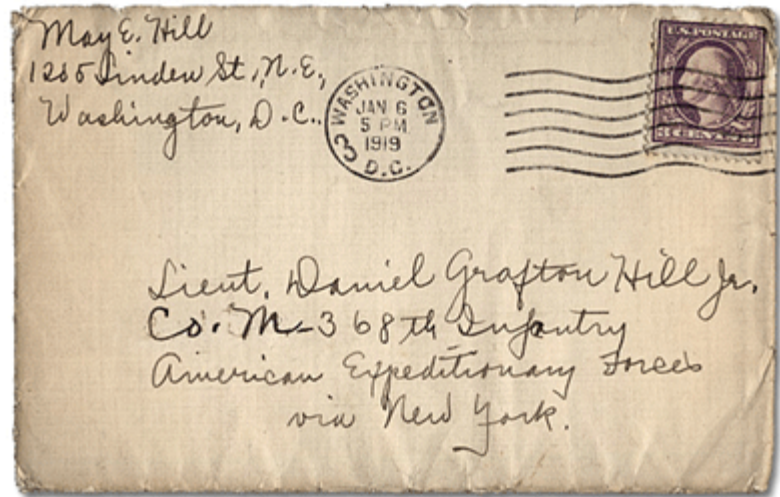 May E. Hill
1205 Linden St., N.E.,
Washington, D.C.
WASHINGTON
JAN 6
5 PM
1919
3
D.C.
U.S. POSTAGE
3 CENTS 3
Lieut. Daniel Grafton Hill Jr.
Co. M-368th Infantry
American Expeditionary Forces
via New York.